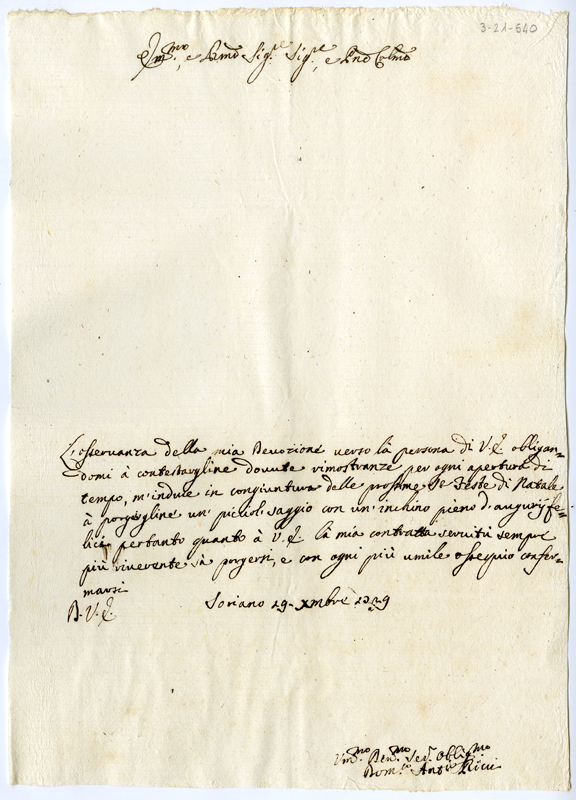 3-21-540
Ill.mo, e P.rone Sig.re Sig.re, e P.ron Col.mo
L'osservanza della mia Devozione verso la persona di V.E. obligan=
domi à contestargline dovute rimostranze per ogni apertura di
tempo, m'induce in congiuntura delle prossime Ste Feste di Natale
à porgergline un' picciol saggio con un' inchino pieno d'augurij fe=
lici pertanto quanto à V.E. la mia contratta servitù sempre
più riverente sà porgersi, e con ogni più umile ossequio confer=
marsi
D. V.E. Soriano 19. Xmbre 1729
Um.mo Dev.mo Ser. Oblig.mo
Dom.co Ant.o Ricci